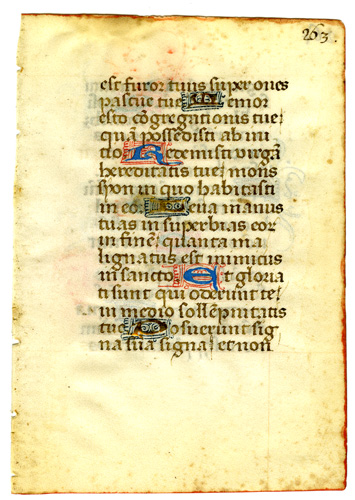 263.
est furor tuus super oues
pascue tue Memor
esto cõgregationis tue/
quã possedisti ab ini
tio Redemisti virgã
hereditatis tue/ mons
syon in quo habitasti
in eo/ Leua manus
tuas in superbias eor
in finẽ/ quanta ma
lignatus est inimicus
in sancto Et gloria
ti sunt qui oderunt te/
in medio sollẽpnitatis
tue Posuerunt sig
na sua signa/ et non